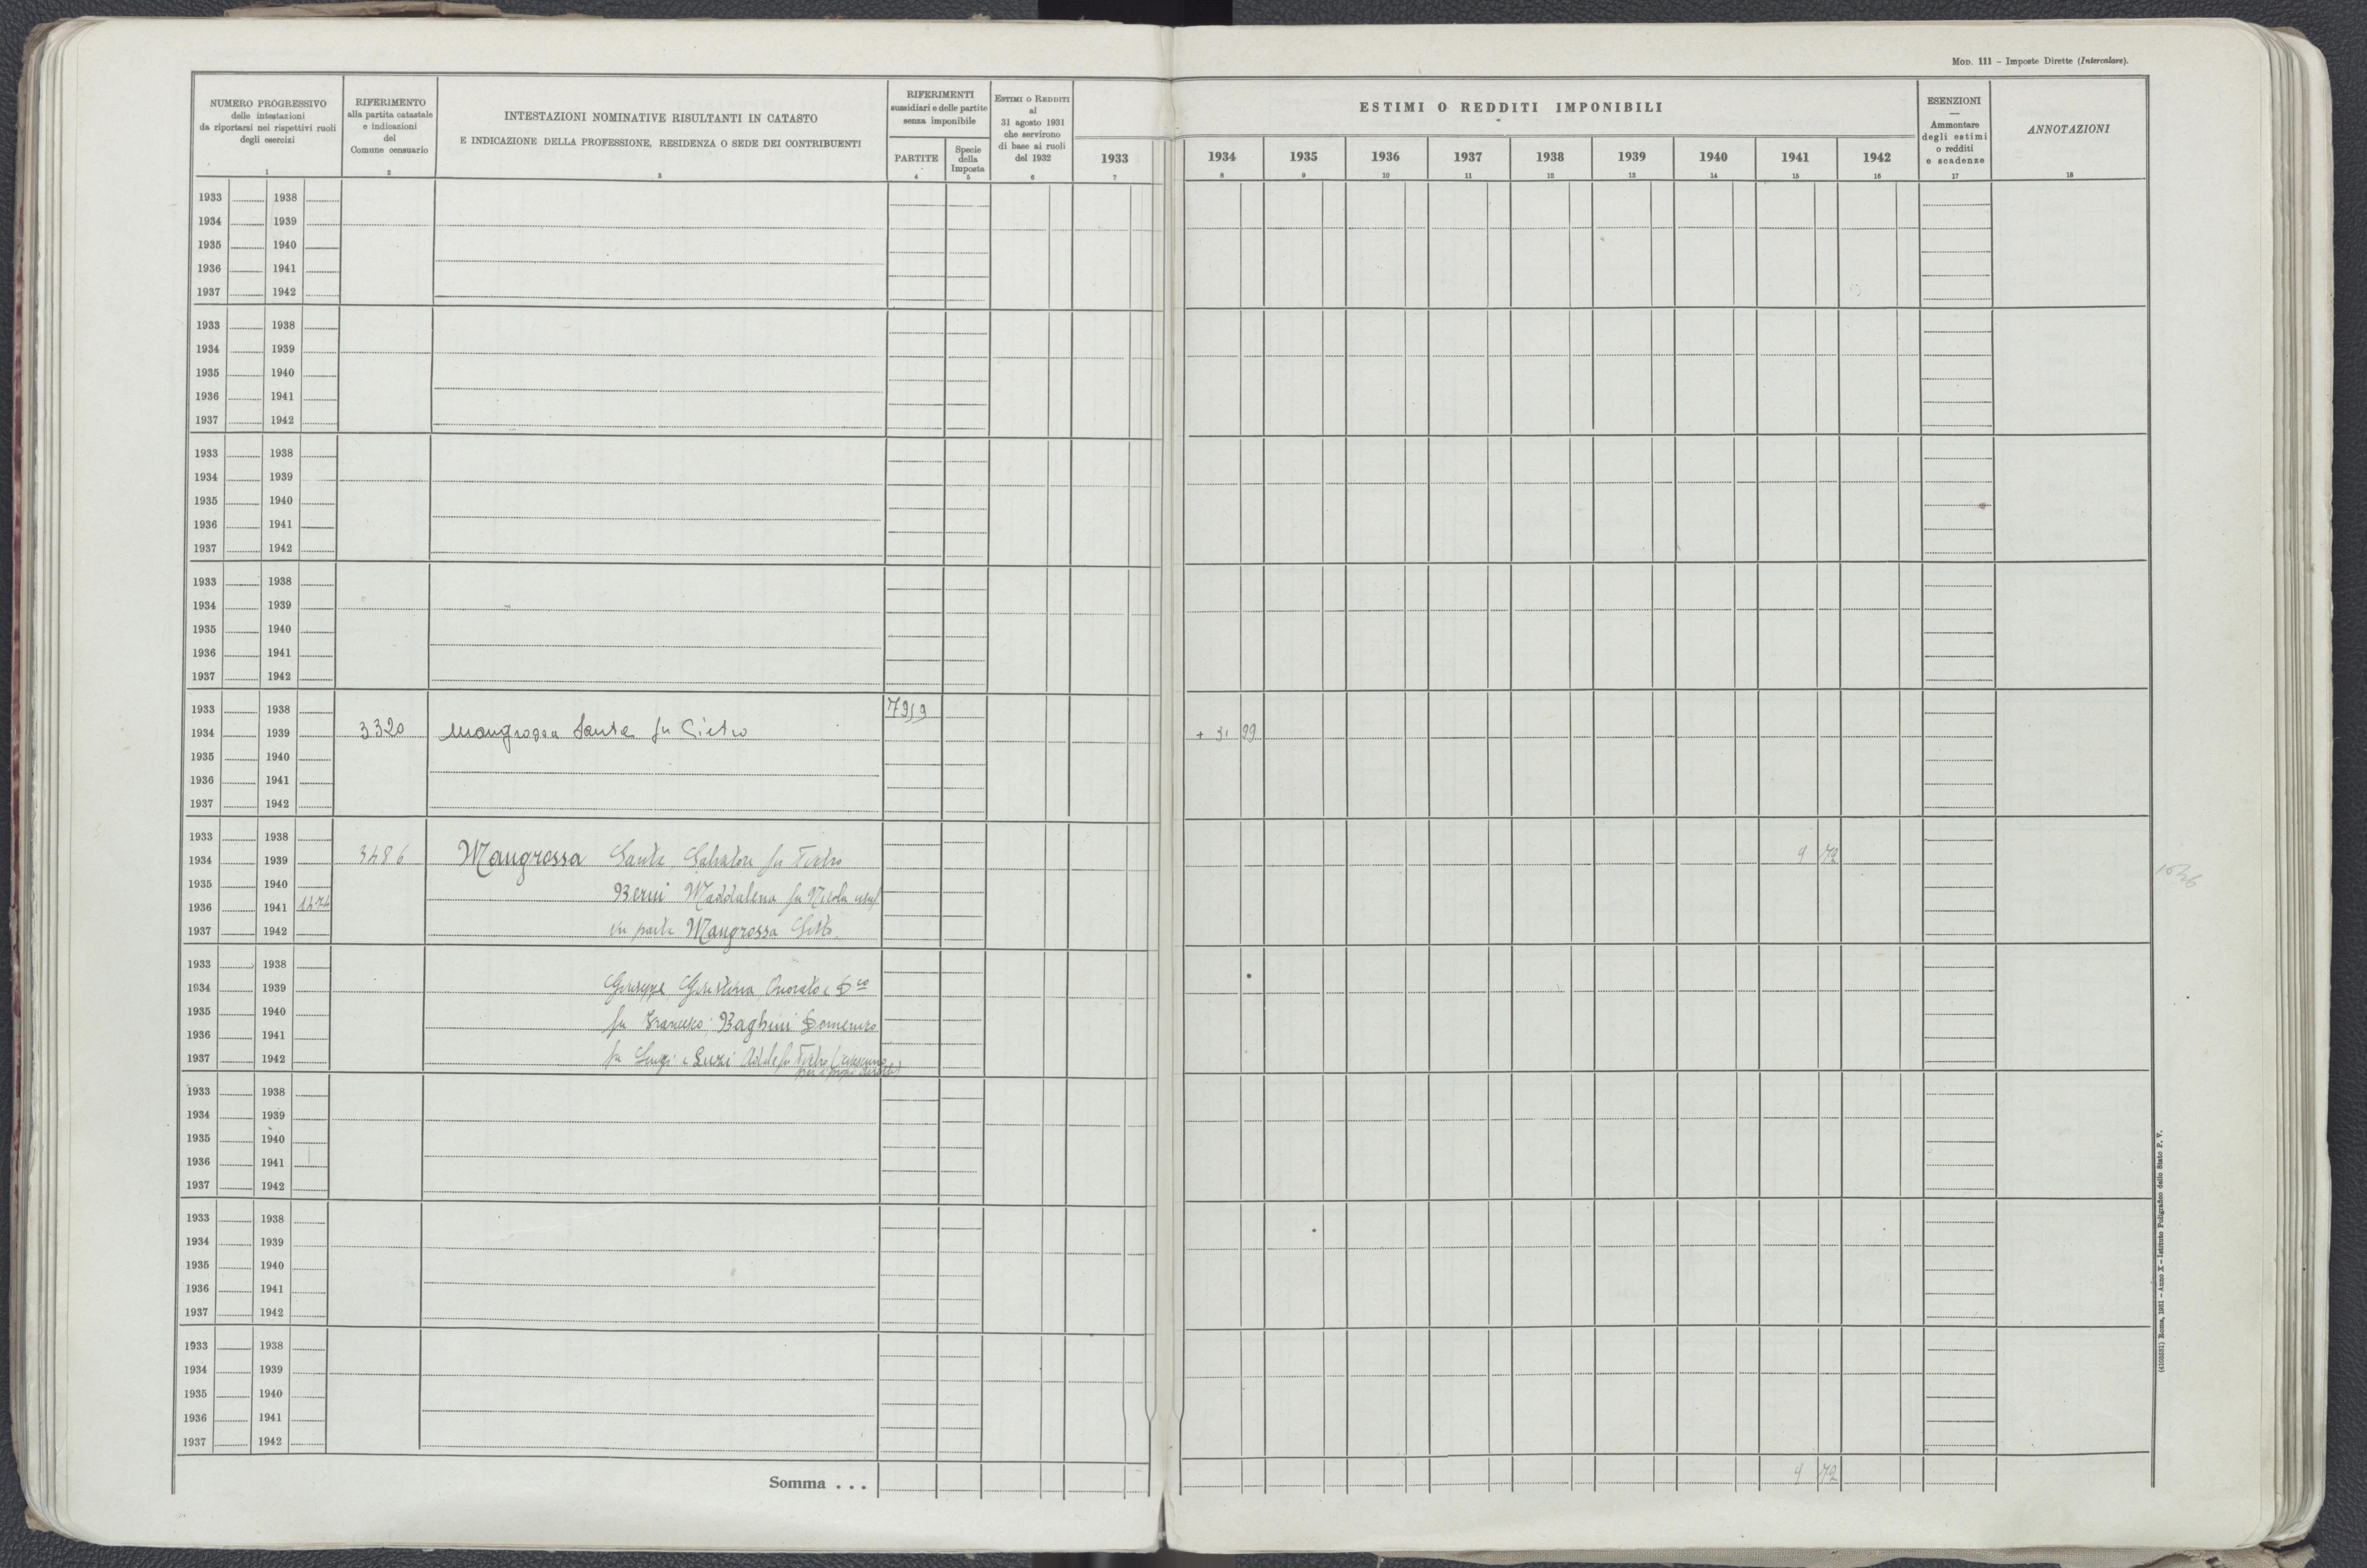 MOD. 111 – Imposte Dirette (Intercalare).
NUMERO PROGRESSIVO
delle intestazioni
da riportarsi nei rispettivi ruoli
degli esercizi
1
RIFERIMENTO
alla partita catastale
e indicazioni
del
Comune censuario
2
INTESTAZIONI NOMINATIVE RISULTANTI IN CATASTO
E INDICAZIONE DELLA PROFESSIONE, RESIDENZA O SEDE DEI CONTRIBUENTI
3
RIFERIMENTI
sussidiari e delle partite
senza imponibile
PARTITE
4
Specie
della
Imposta
5
ESTIMI O REDDITI
al
31 agosto 1931
che servirono
di base ai ruoli
del 1932
6
ESTIMI O REDDITI IMPONIBILI
1933
7
1934
8
1935
9
1936
10
1937
11
1938
12
1939
13
1940
14
1941
15
1942
16
ESENZIONI
—
Ammontare
degli estimi
o redditi
e scadenze
17
ANNOTAZIONI
18
1933 1938
1934 1939
1935 1940
1936 1941
1937 1942
1933 1938
1934 1939
1935 1940
1936 1941
1937 1942
1933 1938
1934 1939
1935 1940
1936 1941
1937 1942
1933 1938
1934 1939
1935 1940
1936 1941
1937 1942
1933 1938
1934 1939 3320 Mangrossa Sante fu Pietro + 31 99
1935 1940
1936 1941
1937 1942
1933 1938
1934 1939 3486 Mangrossa Sante, Salvatore fu Pietro 9 72
1935 1940
1936 1941 1474 Berni Maddalena fu Nicola usuf
1937 1942 in parte Mangrossa
1933 1938
1934 1939 Giuseppe Onorato e Dco
1935 1940
1936 1941 fu Francesco; Baghini Domenico
1937 1942 fu Luigi e Luzi Adele fu Pietro (ciascuno
per i propri diritti)
1933 1938
1934 1939
1935 1940
1936 1941
1937 1942
1933 1938
1934 1939
1935 1940
1936 1941
1937 1942
1933 1938
1934 1939
1935 1940
1936 1941
1937 1942
Somma . . . 9 72
(4103531) Roma, 1931 – Anno X – Istituto Poligrafico dello Stato P. V.